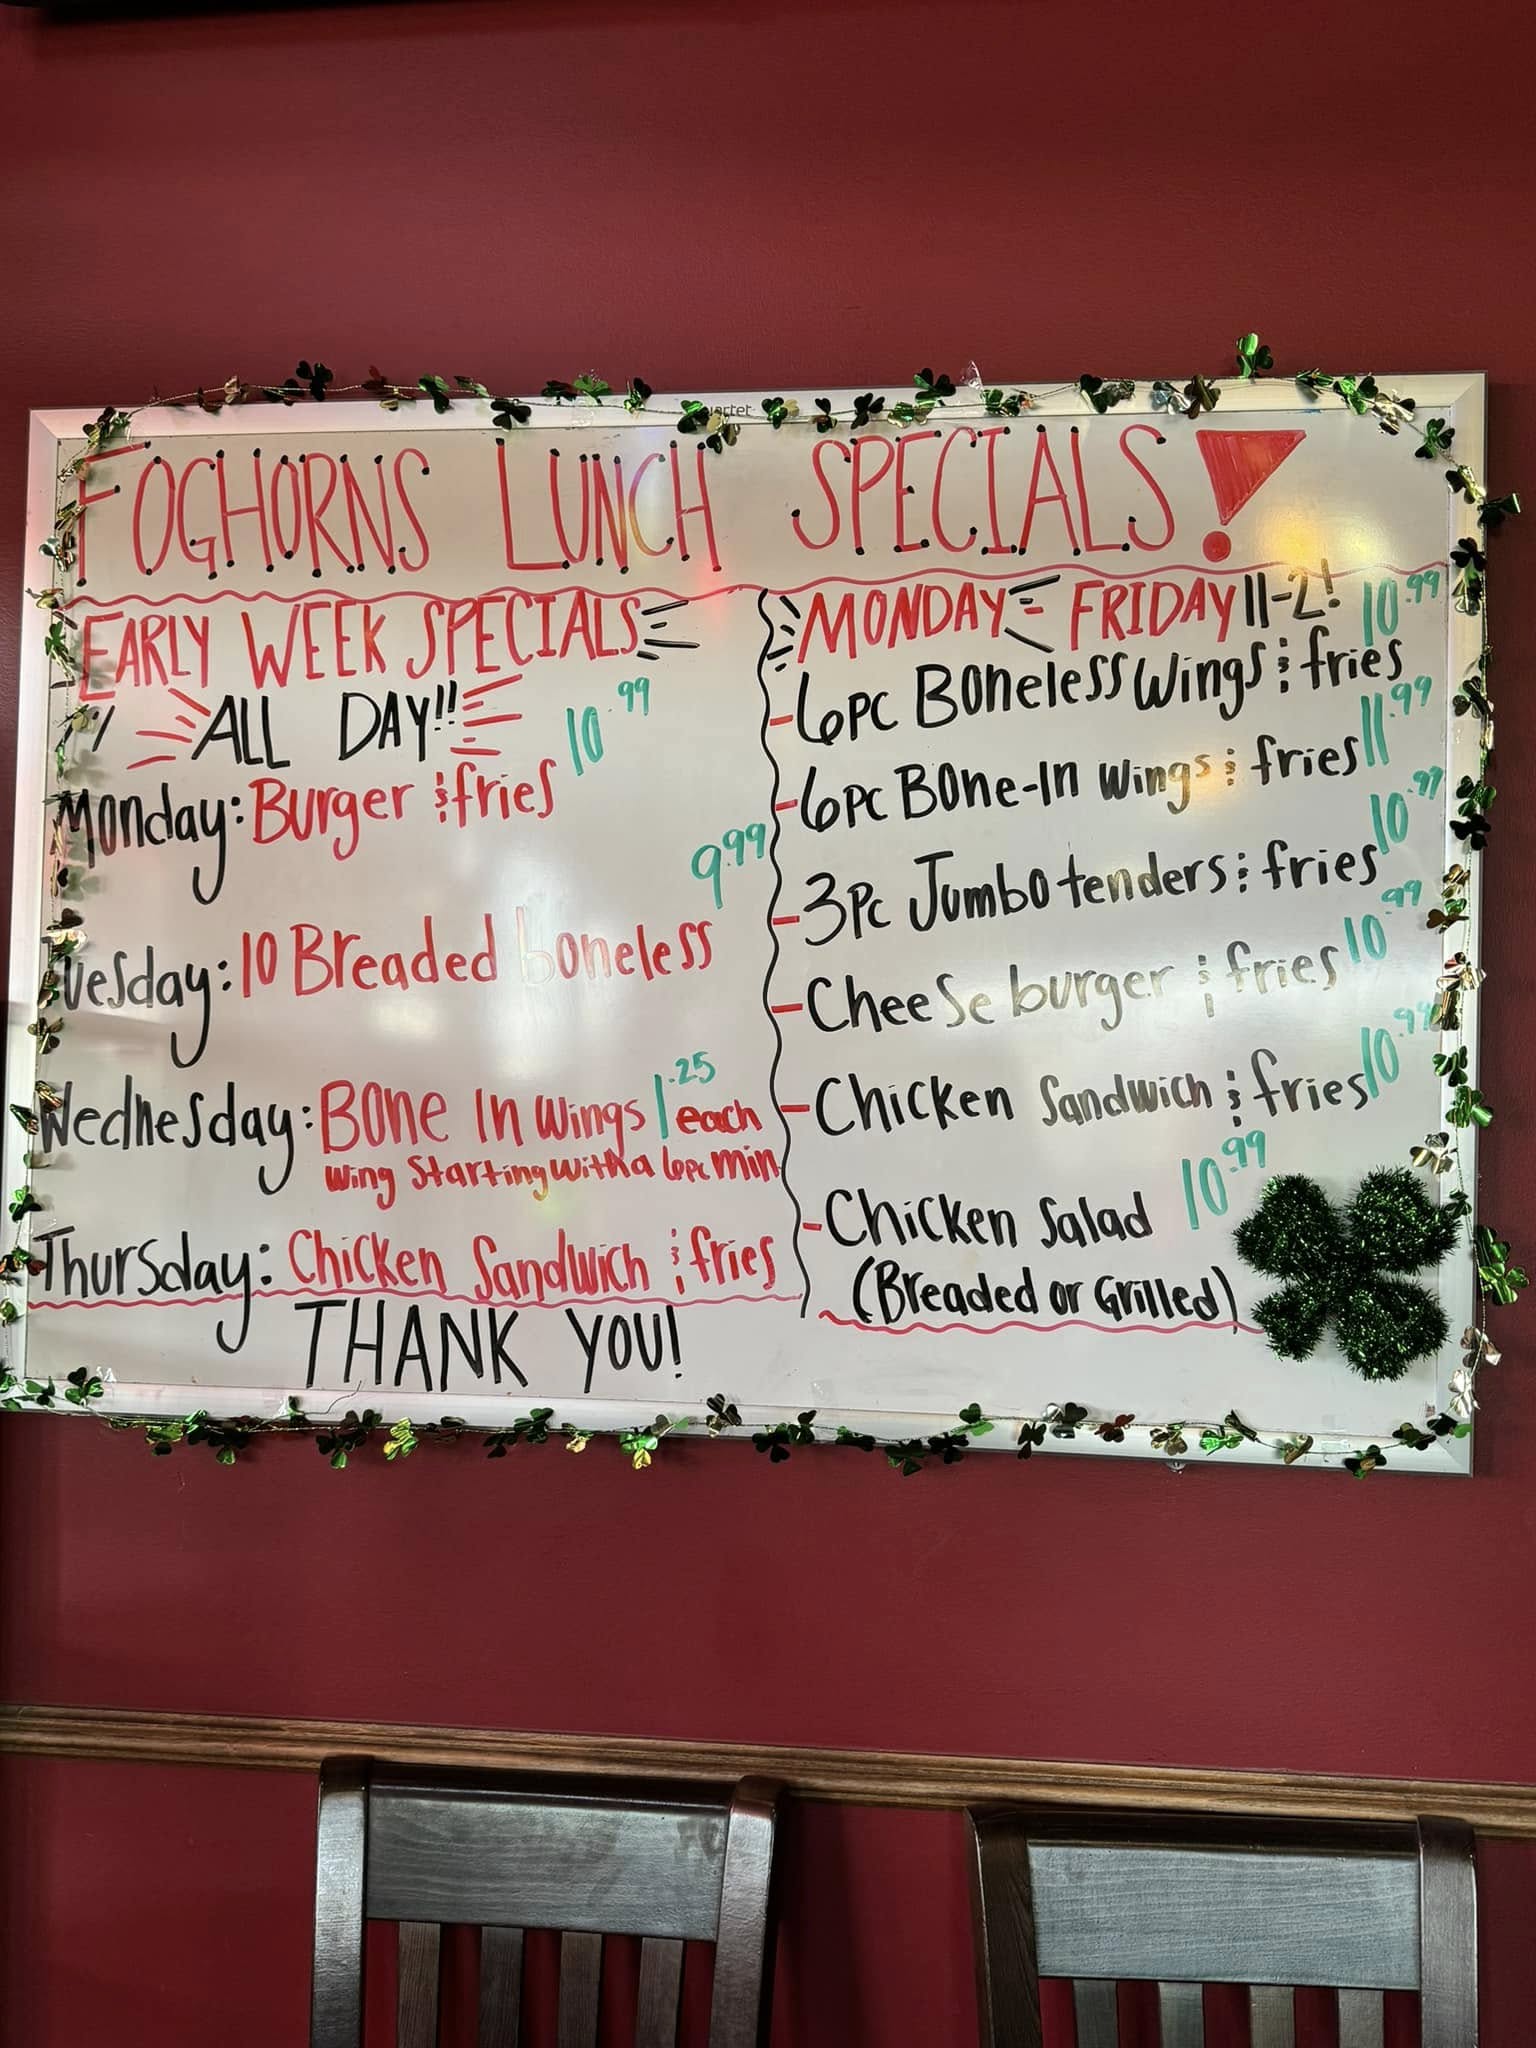 FOGHORNS LUNCH SPECIALS!
EARLY WEEK SPECIALS
ALL DAY!!
Monday: Burger & fries 10.99
Tuesday: 10 Breaded boneless 9.99
Wednesday: Bone In wings 1.25 each
wing starting with a 6pc min
Thursday: Chicken Sandwich & fries
THANK YOU!
MONDAY - FRIDAY 11-2!
- 6pc Boneless Wings & fries 10.99
- 6pc Bone-In wings & fries 11.99
- 3pc Jumbo tenders & fries 10.99
- Cheeseburger & fries 10.99
- Chicken Sandwich & fries 10.99
- Chicken Salad 10.99
(Breaded or Grilled)